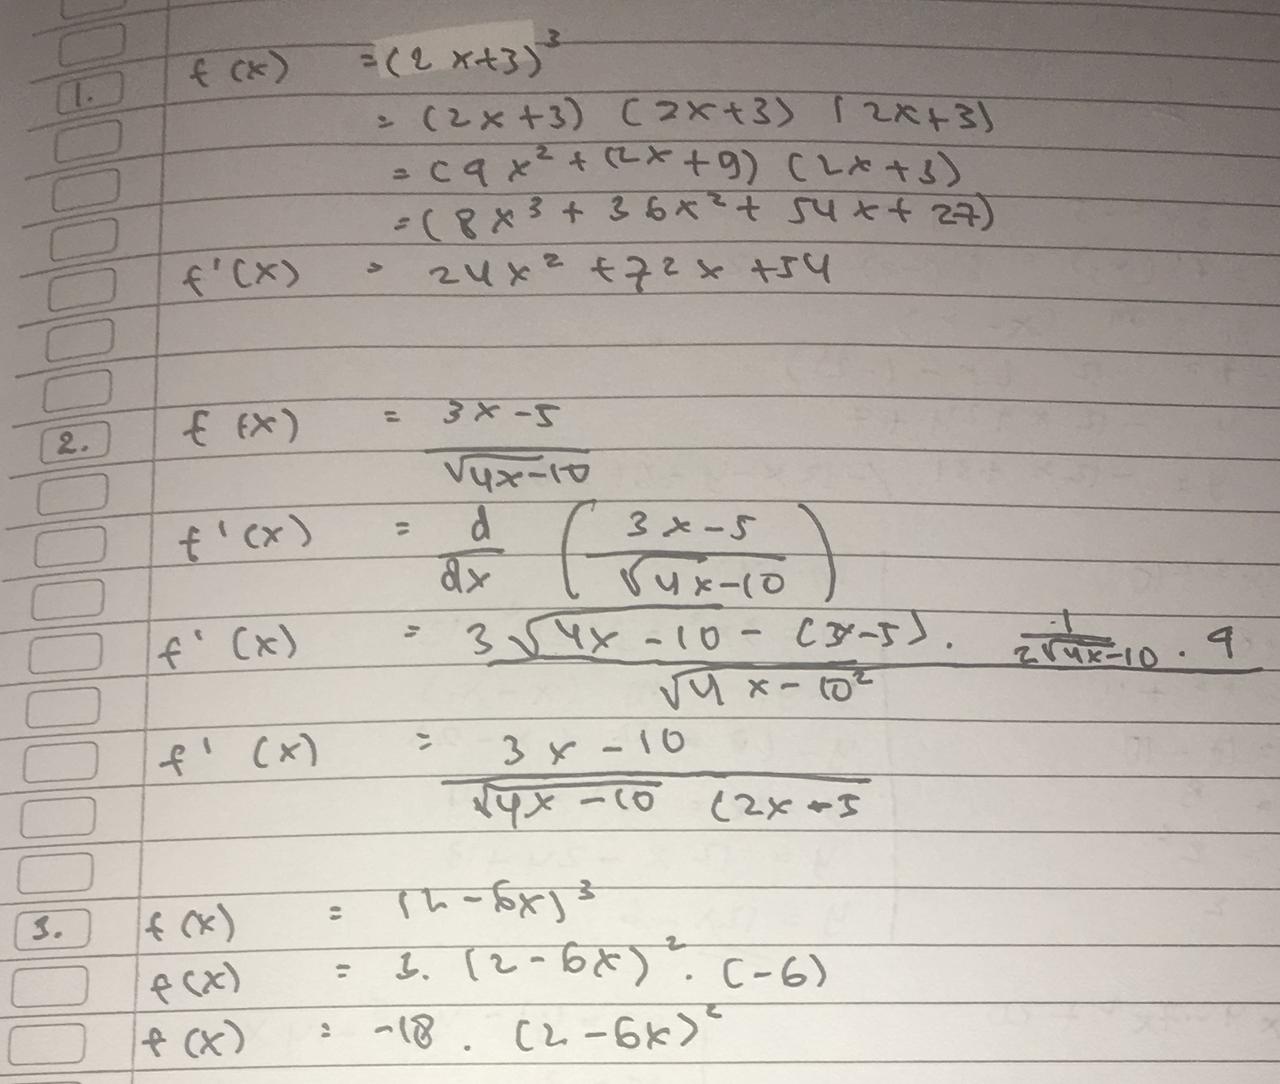 1. f(x) = (2x+3)³
= (2x+3) (2x+3) (2x+3)
= (4x² + 12x + 9) (2x+3)
= (8x³ + 36x² + 54x + 27)
f'(x) = 24x² + 72x + 54
2. f(x) = 3x-5 / √4x-10
f'(x) = d/dx (3x-5 / √4x-10)
f'(x) = 3√4x-10 - (3x-5) . 1/2√4x-10 . 4 / √4x-10²
f'(x) = 3x-10 / √4x-10 (2x-5
3. f(x) = (2-6x)³
f(x) = 3. (2-6x)² . (-6)
f(x) = -18 . (2-6x)²